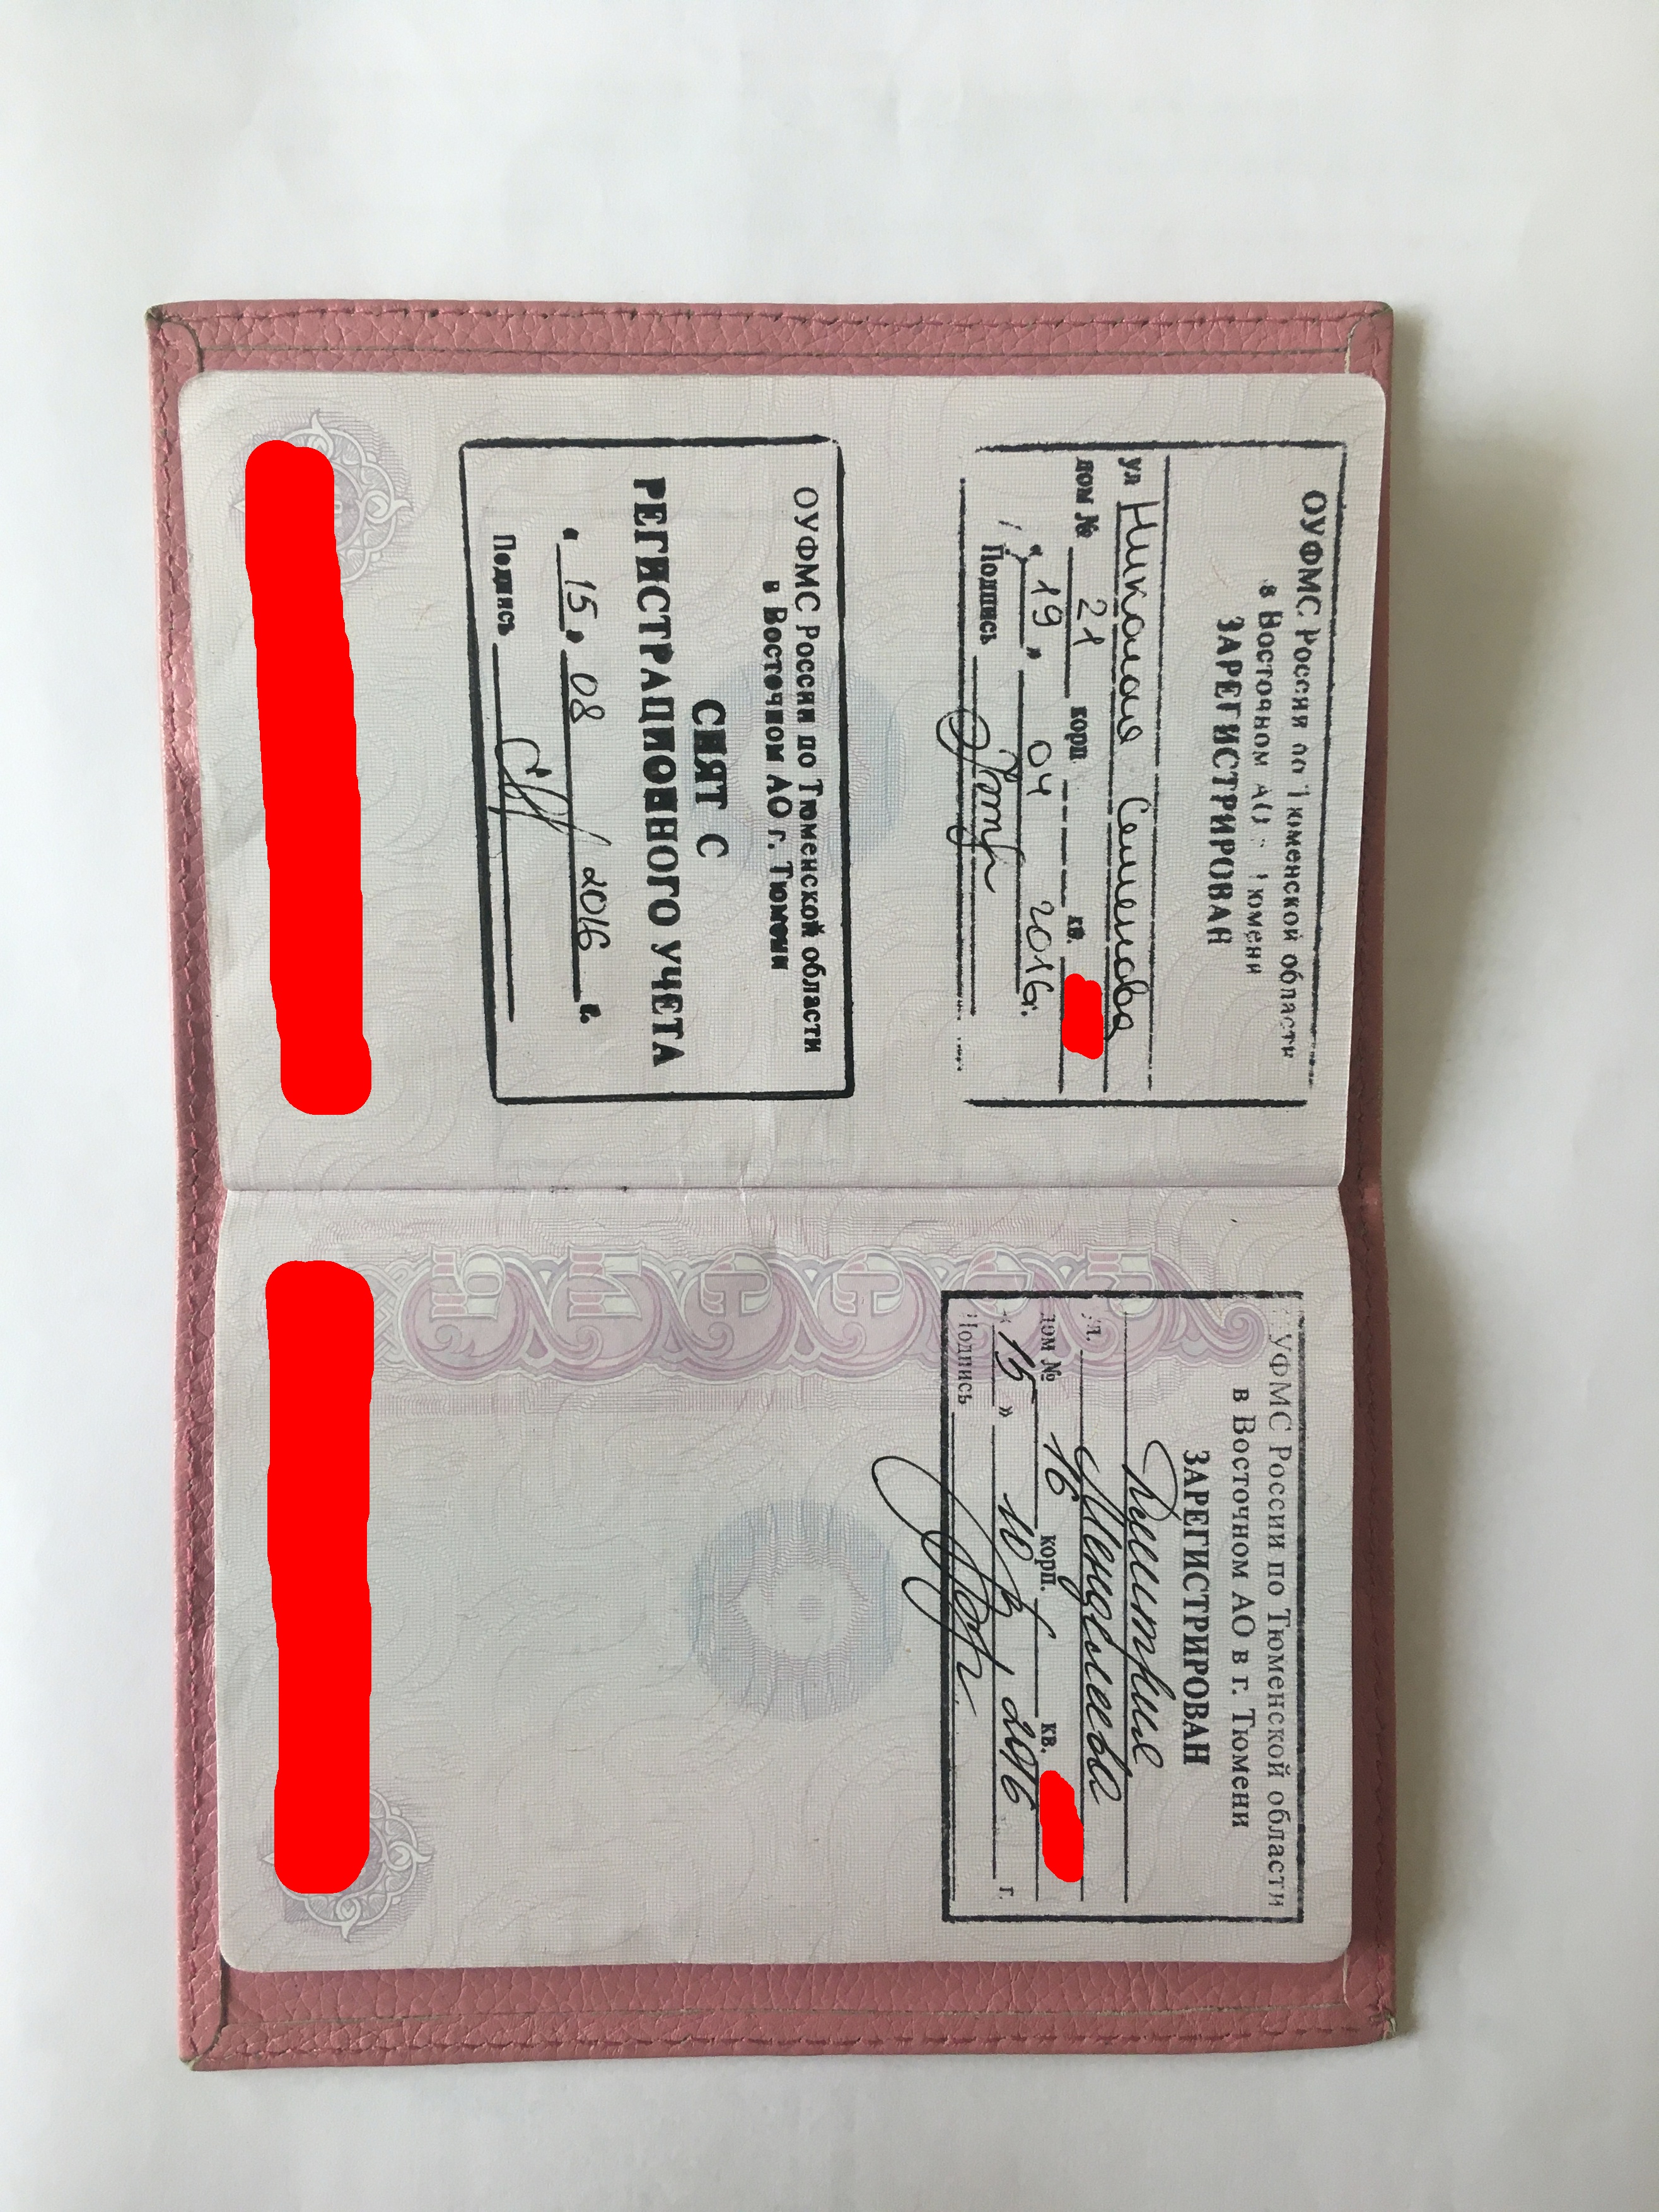 ОУФМС России по Тюменской области
в Восточном АО г. Тюмени
ЗАРЕГИСТРИРОВАН
ул Николая Семенова
дом № 21 корп. кв.
"19" 04 2016г.
Подпись
ОУФМС России по Тюменской области
в Восточном АО г. Тюмени
СНЯТ С
РЕГИСТРАЦИОННОГО УЧЕТА
"15" 08 2016 г.
Подпись
УФМС России по Тюменской области
в Восточном АО в г. Тюмени
ЗАРЕГИСТРИРОВАН
Дмитрия
ул. Менделеева
дом № 16 корп. кв.
«15» 2016 г.
Подпись